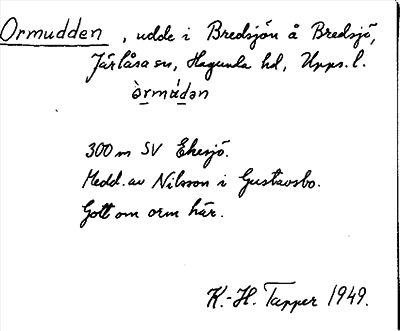 Ormudden, udde i Bredsjön å Bredsjö,
Järlåsa sn, Hagunda hd, Upps. l.
òrmúdən
300 m SV Ekesjö.
Medd. av Nilsson i Gustavsbo.
Gott om orm här.
K.-H. Tapper 1949.